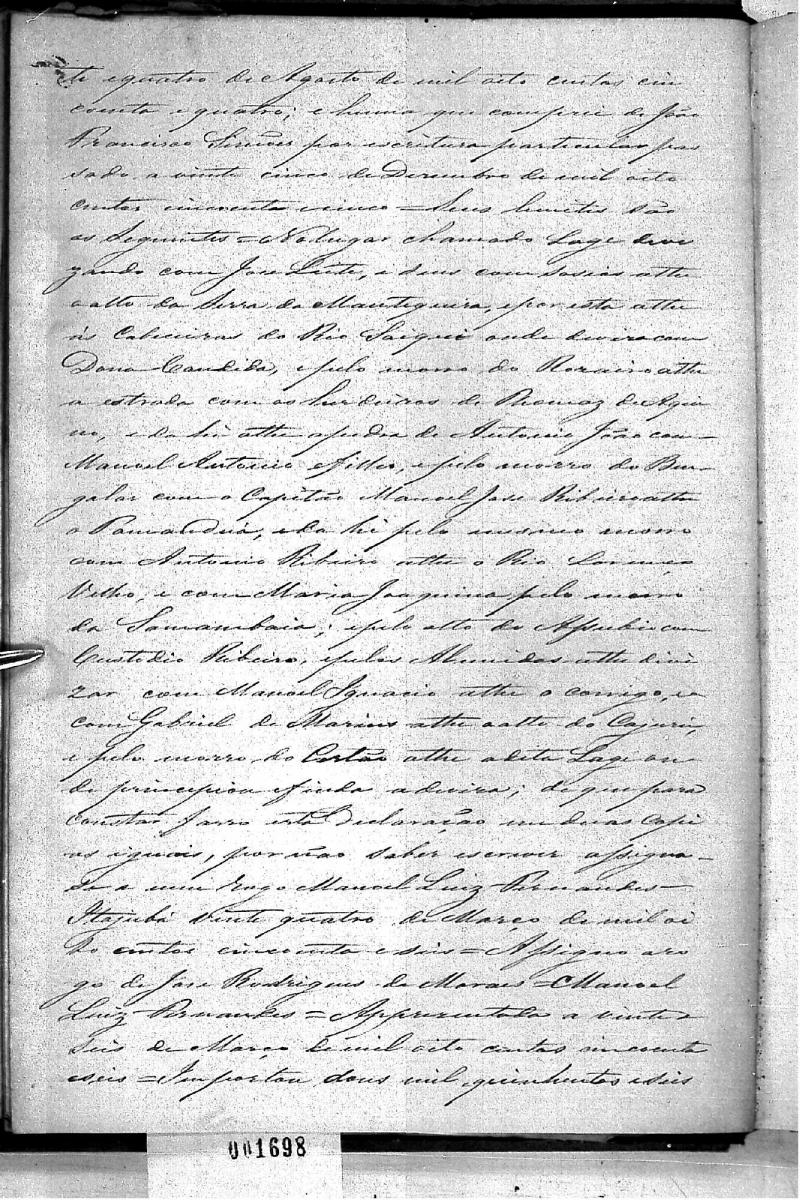 te equatro de Agosto de mil oito centos cin
coenta e quatro; e huma que comprei de João
Francisco Simões por escritura particular pas
sado a vinte cinco de Dezembro de mil oito
centos cincoenta e cinco = Seus limites são
os Seguintes = No Lugar chamado Lage devi
zando com Jose Leite, e seus com socios athe
o alto da Serra da Mantiqueira, epor esta athe
ás Cabeceiras do Rio Saiqui onde deviza com
Dona Candida, epelo morro do Rozario athe
a estrada com os herdeiros de Thomaz de Aqui
no, e da hi athe apedra de Antonio João com
Manoel Antonio efilho, epelo morro do
com o Capitão Manoel Jose Ribeiro athe
o Pamanduá, eda hi pelo mesmo morro
com Antonio Ribeiro athe o Rio Lourenço
Velho, e com Maria Joaquina pelo morro
da Samambaia; epelo alto do com
Custodio Ribeiro, epelos Almeidas athe divi
zar com Manoel Ignacio athe o corrigo, e
com Gabriel de Marins athe o alto do Cajuri,
e pelo morro do Cortão athe adita Lage on
de principiou efinda adeviza; de que para
constar Fasso esta Declaração em duas copi
as iguais, por não saber escrever assigna
do a meu rogo Manoel Luiz Fernandes =
Itajubá vinte quatro de Março de mil oi
to centos cincoenta e seis = Assigno aro
go de Jose Rodrigues de Moraes = Manoel
Luiz Fernandes = Appresentada a vinte e
seis de Março de mil oito centos cincoenta
eseis = Importou dous mil, quinhentos eseis
001698